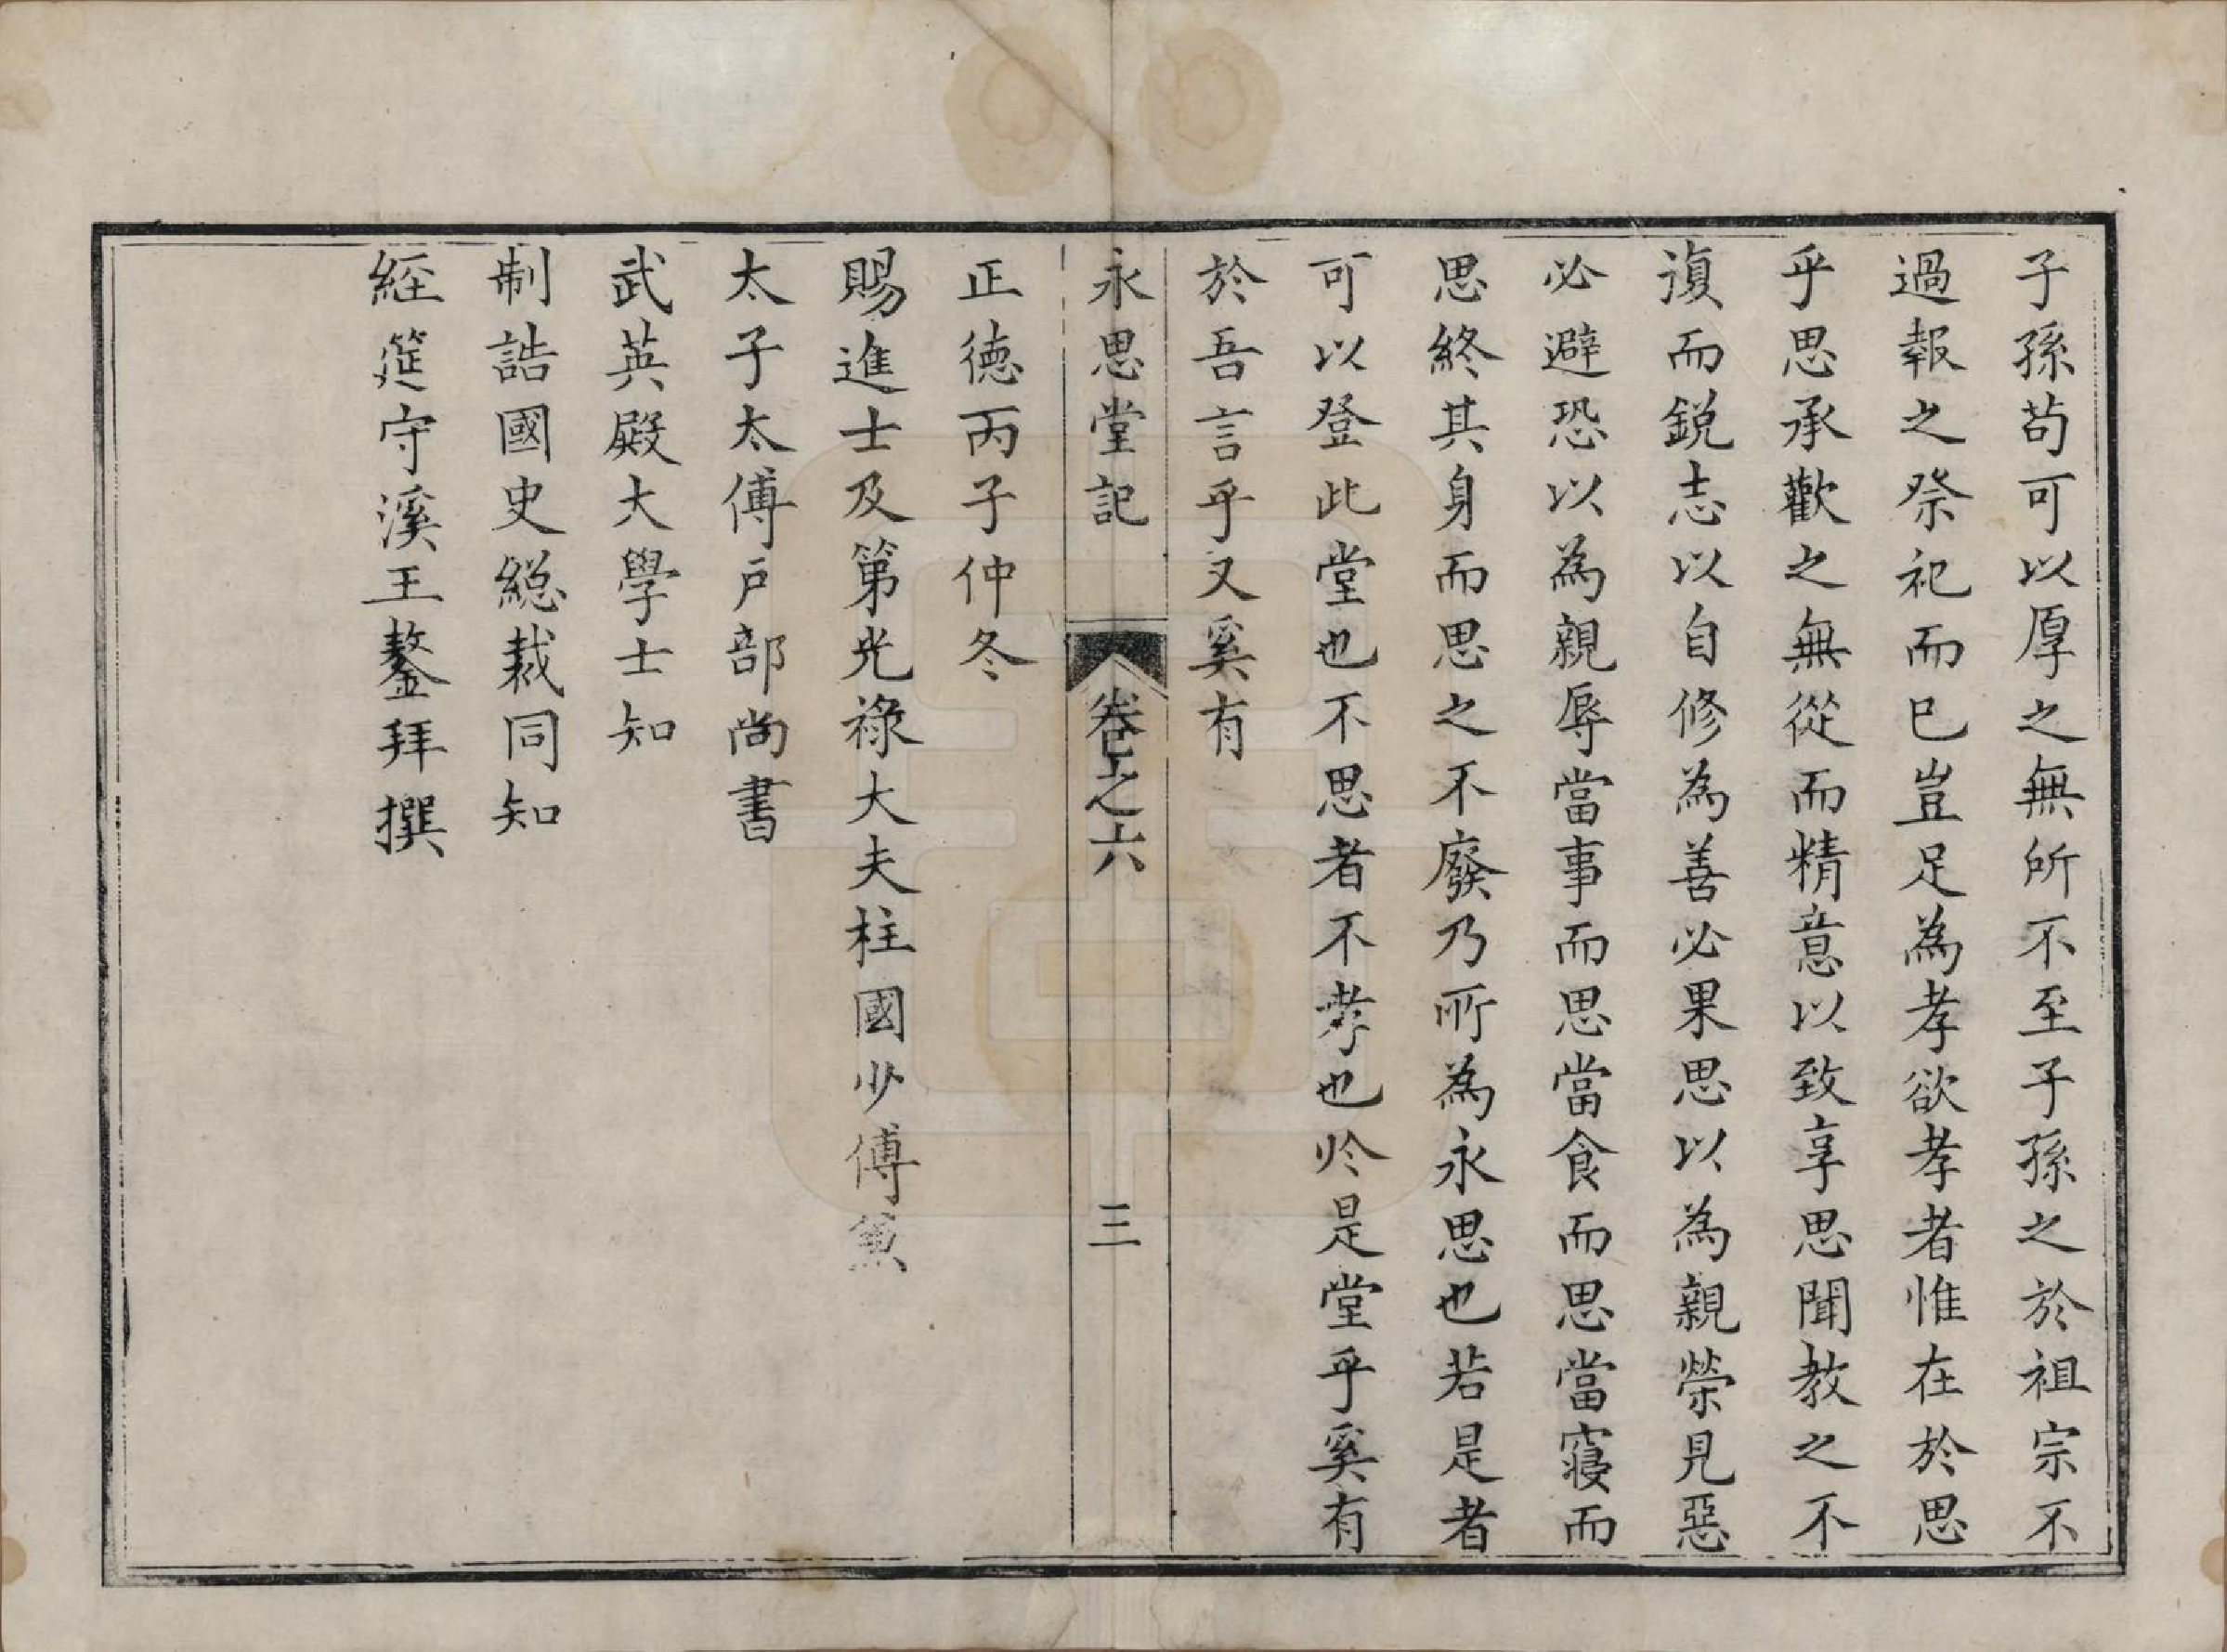 子孫苟可以厚之無所不至子孫之於祖宗不
過報之祭祀而已豈足為孝欲孝者惟在於思
乎思承歡之無從而精意以致享思聞教之不
復而銳志以自修為善必果思以為親榮見惡
必避恐以為親辱當事而思當食而思當寢而
思終其身而思之不廢乃所為永思也若是者
可以登此堂也不思者不孝也於是堂乎奚有
於吾言乎又奚有
永思堂記 卷之六 三
正德丙子仲冬
賜進士及第光祿大夫柱國少傅兼
太子太傅戶部尚書
武英殿大學士知
制誥國史總裁同知
經筵守溪王鏊拜撰